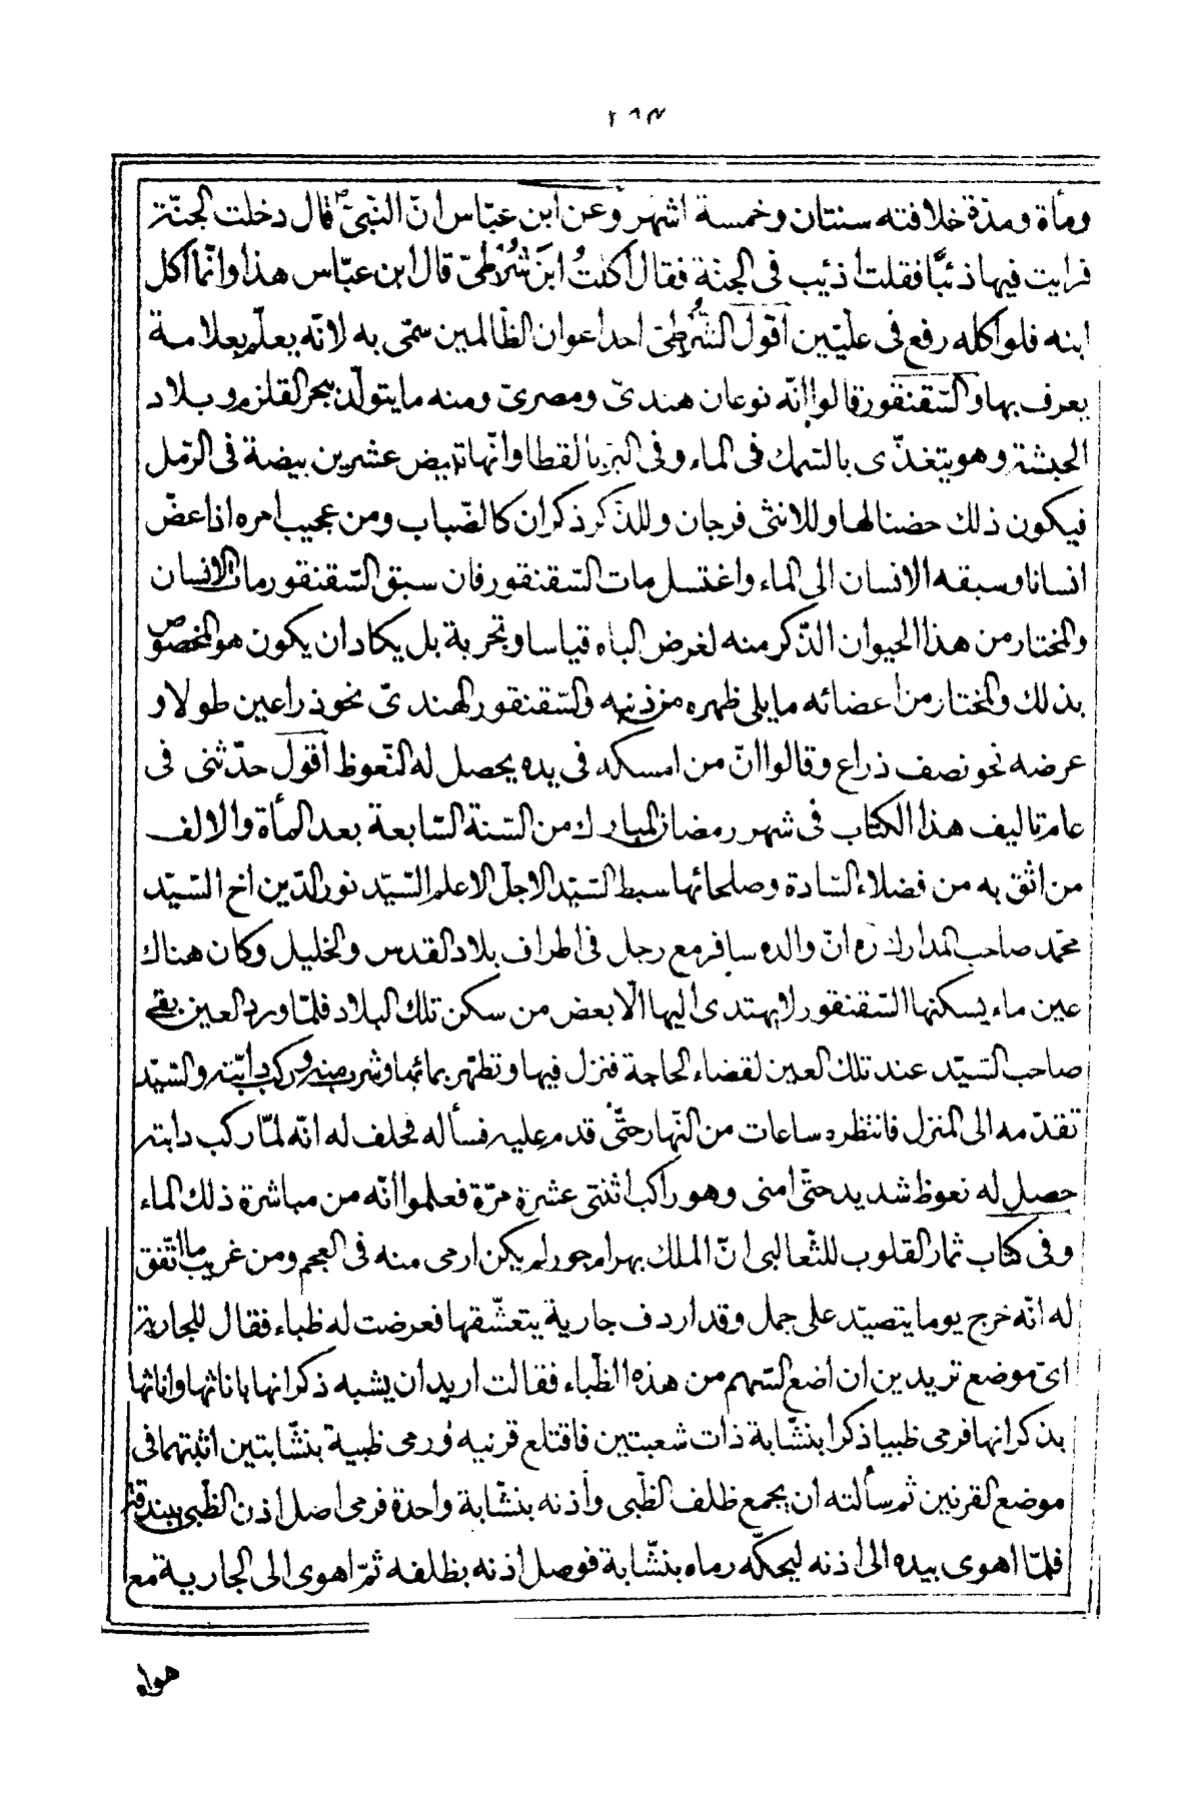 ومأة ومدّة خلافته سنتان وخمسة اشهر وعن ابن عبّاس انّ النّبىّ ص قال دخلت الجنّة
فرايت فيها ذئبًا فقلت اذئيب فى الجنة فقال أكلتُ ابنَ شُرْطىّ قال ابن عبّاس هذا وانّما اكل
ابنه فلو اكله رفع فى علّيّين اقول الشُّرْطىّ احد اعوان الظّالمين سمّى به لانّه يعلّم بعلامة
يعرف بها والسّقنقور قالوا انّه نوعان هندىّ ومصرىّ ومنه ما يتولّد ببحر القلزم وبلاد
الحبشة وهو يتغذّى بالسّمك فى الماء وفى البرّ بالقطا وانّها تبيض عشرين بيضة فى الرّمل
فيكون ذلك حضنا لها وللانثى فرجان وللذّكر ذكران كالضّباب ومن عجيب امره اذا عضّ
انسانا وسبقه الانسان الى الماء واغتسل مات السّقنقور فان سبق السّقنقور مات الانسان
والمختار من هذا الحيوان الذّكر منه لغرض الباه قياسا وتجربة بل يكاد ان يكون هو المخصوص
بذلك والمختار من اعضائه ما يلى ظهره من ذنبه والسّقنقور الهندىّ نحو ذراعين طولا و
عرضه نحو نصف ذراع وقالوا انّ من امسكه فى يده يحصل له النّعوظ اقول حدّثنى فى
عام تاليف هذا الكتاب فى شهر رمضان المبارك من السّنة السّابعة بعد المأة والالف
من اثق به من فضلاء السّادة وصلحائها سبط السّيّد الاجلّ الاعلم السّيّد نور الدّين اخ السّيّد
محمّد صاحب المدارك ره انّ والده سافر مع رجل فى اطراف بلاد القدس والخليل وكان هناك
عين ماء يسكنها السّقنقور لا يهتدى اليها الّا بعض من سكن تلك البلاد فلمّا ورد العين بقى
صاحب السّيّد عند تلك العين لقضاء الحاجة فنزل فيها وتطهّر بمائها وشرب منه وركب دابّته والسّيّد
تقدّمه الى المنزل فانتظره ساعات من النّهار حتّى قدم عليه فسأله فحلف له انّه لمّا ركب دابته
حصل له نعوظ شديد حتّى امنى وهو راكب اثنتى عشرة مرّة فعلموا انّه من مباشرة ذلك الماء
وفى كتاب ثمار القلوب للثّعالبى انّ الملك بهرام جور لم يكن ارمى منه فى العجم ومن غريب ما اتّفق
له انّه خرج يوما يتصيّد على جمل وقد اردف جارية يتعشّقها فعرضت له ظباء فقال للجارية
اىّ موضع تريدين ان اضع السّهم من هذه الظّباء فقالت اريد ان يشبه ذكرانها باناثها واناثها
بذكرانها فرمى ظبيا ذكرا بنشّابة ذات شعبتين فاقتلع قرنيه ورمى ظبية بنشّابتين اثبتهما فى
موضع القرنين ثم سألته ان يجمع ظلف الظّبى وأذنه بنشّابة واحدة فرمى اصل اذن الظّبى ببندقة
فلمّا اهوى بيده الى اذنه ليحكّه رماه بنشّابة فوصل اذنه بظلفه ثمّ اهوى الى الجارية مع
هواه